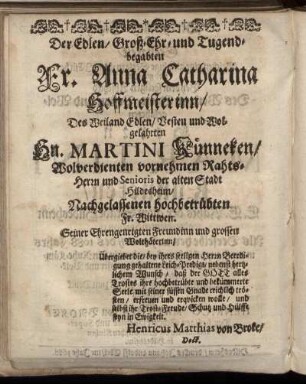 Der Edlen/ Groß-Ehr-und Tugend-
begabten
Fr. Anna Catharina
Hoffmeisterinn/
Des Weiland Edlen/ Vesten und Wol-
gelahrten
Hn. MARTINI Künneken/
Wolverdienten vornehmen Rahts-
Herrn und Senioris der alten Stadt
Hildesheim/
Nachgelassenen hochbetrübten
Fr. Wittwen.
Seiner Ehrengeneigten Freundinn und grossen
Wolthäterinn/
Übergiebet diese bey ihres seeligen Herrn Beerdi-
gung gehaltene Leich-Predig/ nebenst hertz-
lichem Wunsch/ daß der GOTT alles
Trostes ihre hochbetrübte und bekümmerte
Seele mit seiner süssen Gnade reichlich trö-
sten/ erfreuen und erqvicken wolle/ und
selbst ihr Trost/ Freude/ Schutz und Hülffe
seyn in Ewigkeit.
Henricus Matthias von Broke/